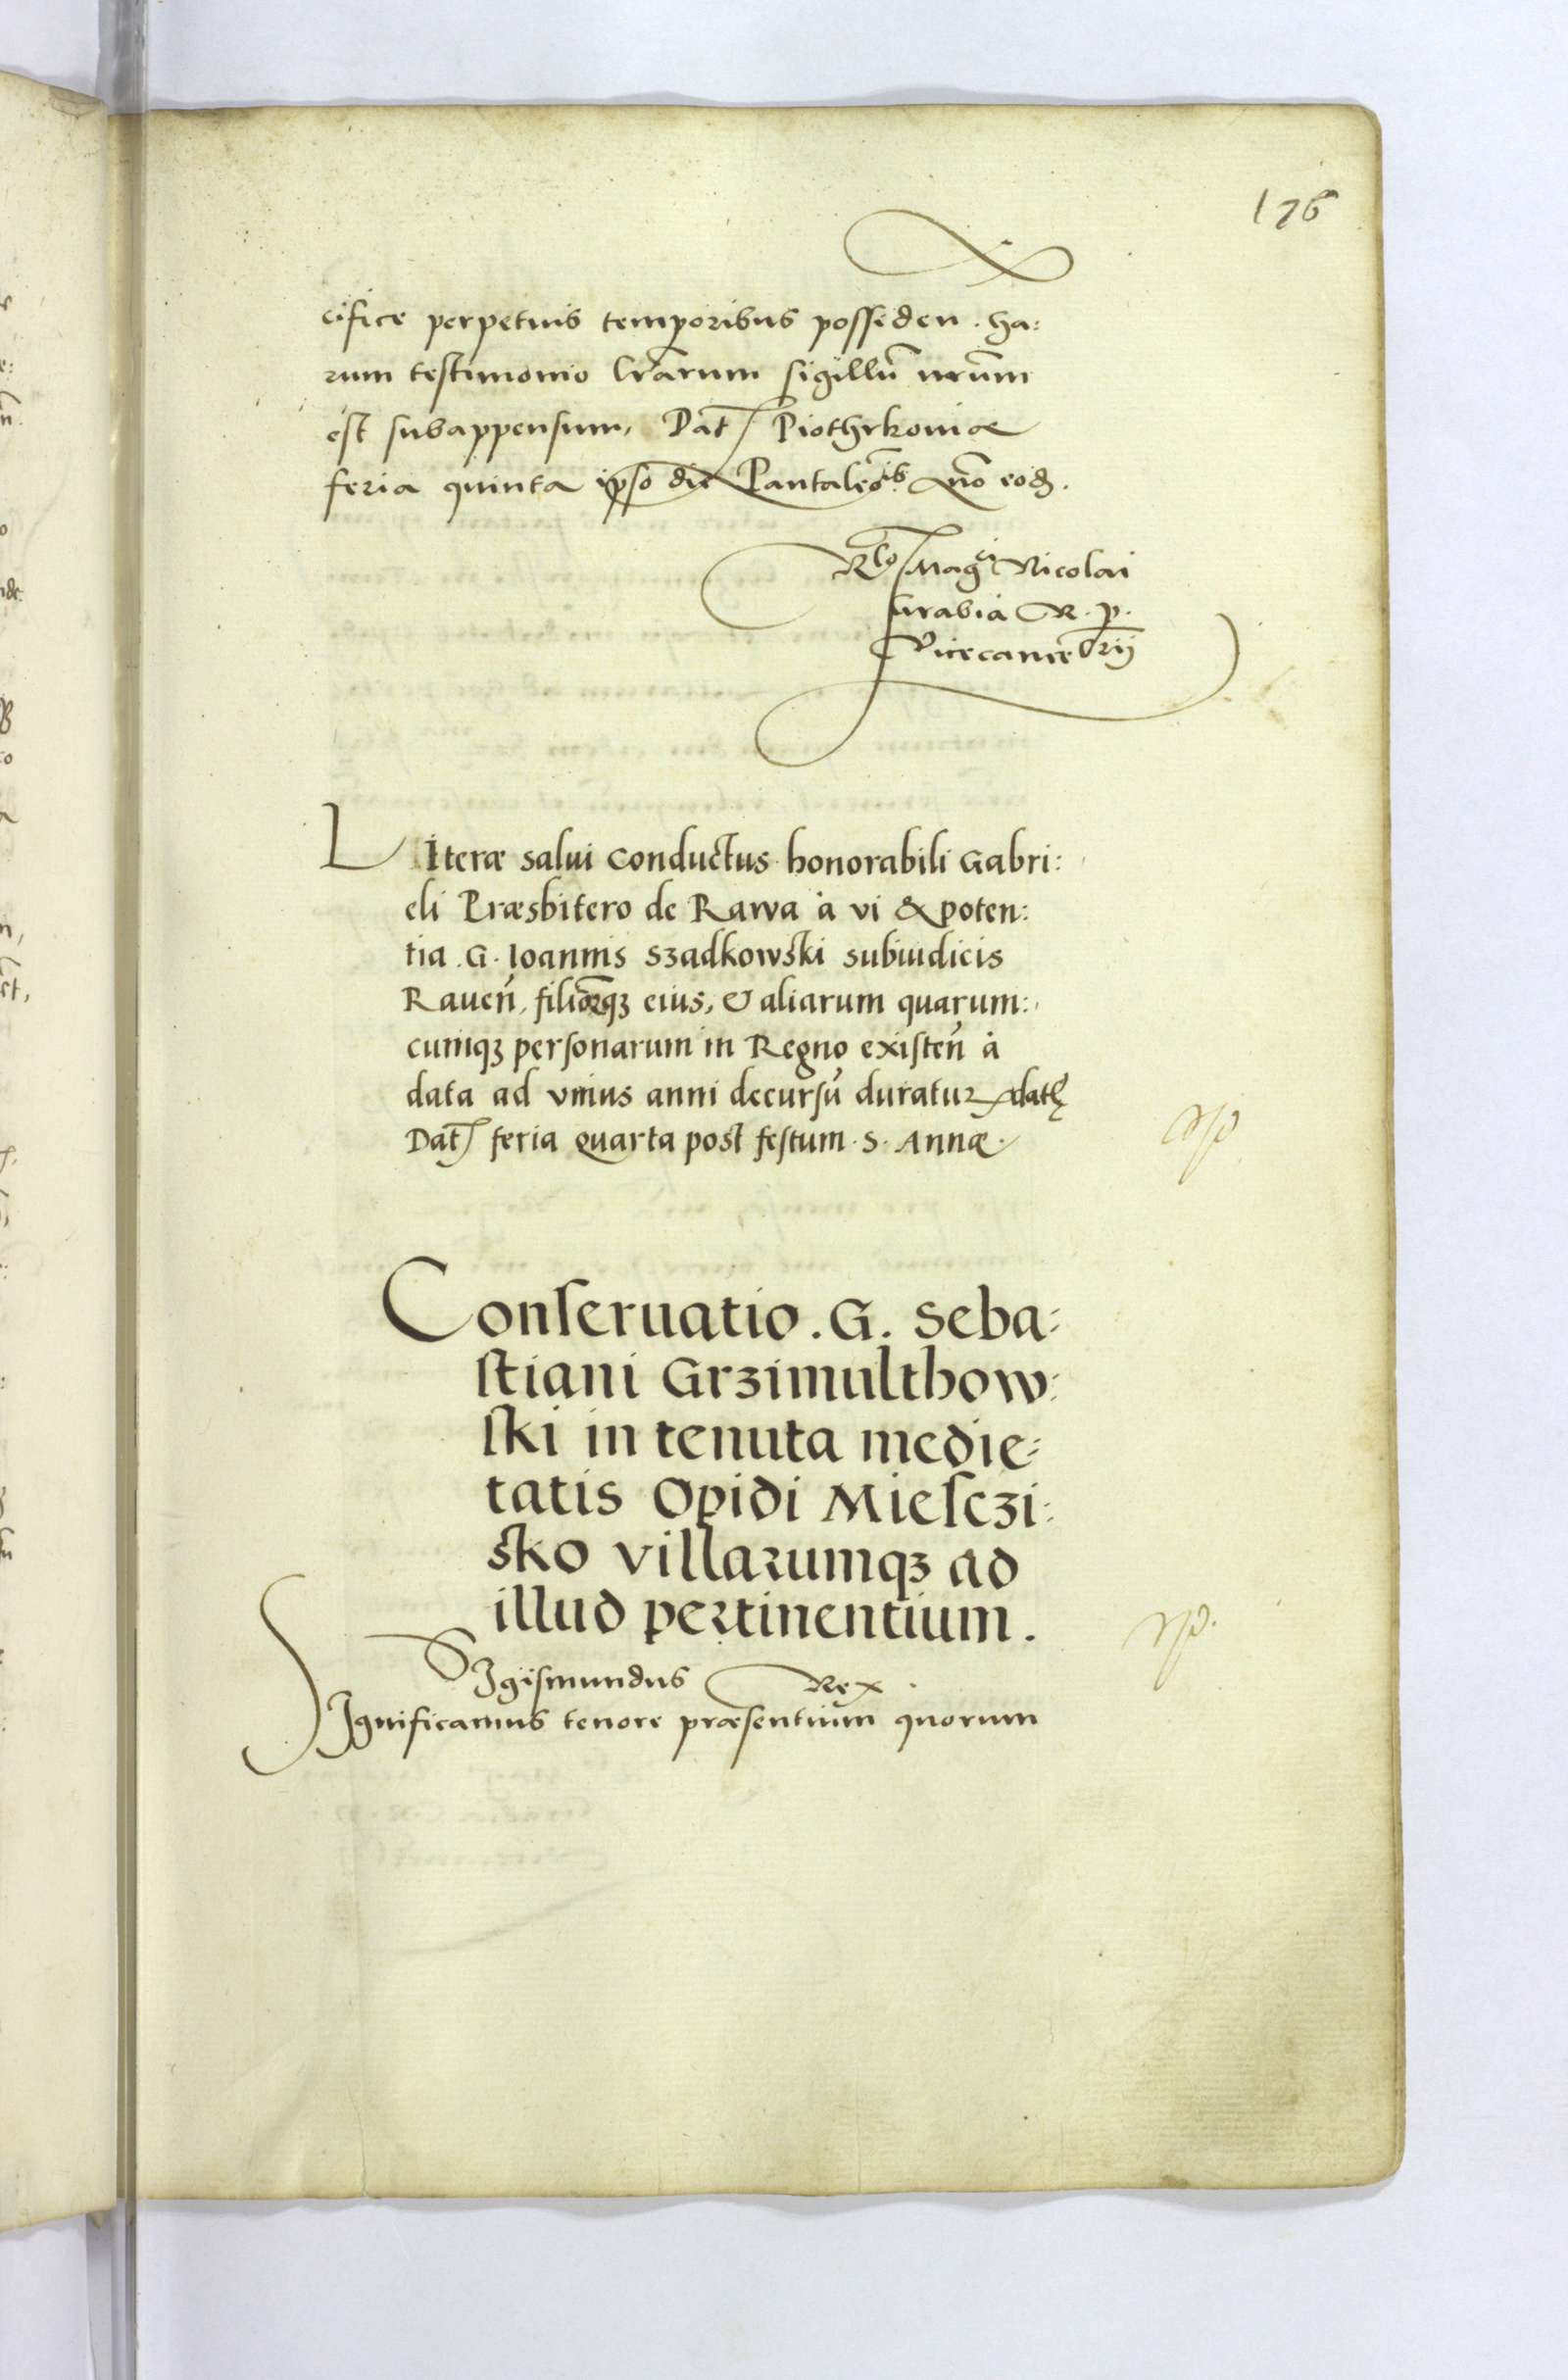 176
cifice perpetuis temporibus posseden. ha:
rum testimonio lr̃arum sigillũ nr̃um
est subappensum, Dat̃ Piothrkouiæ
feria quinta ipso die Pantaleõis Anno eod̃.
R̃lo Magci Nicolai
Grabia R. P.
Vicecancellrij
LIteræ salui conductus honorabili Gabri:
eli Præsbitero de Rawa à vi & poten:
tia .G. Ioannis Szadkowski subiudicis
Raueñ, filiorumqꝫ eius, & aliarum quarum:
cumqꝫ personarum in Regno existeñ à
data ad vnius anni decursũ duraturæ datę
Dat̃ feria quarta post festum .S. Annæ.
Conseruatio .G. Seba:
stiani Grzimulthow:
ski in tenuta medie:
tatis Opidi Miesczi:
sko villarumqꝫ ad
illud pertinentium.
SIgismundus Rex.
SIgnificamus tenore præsentium quorum